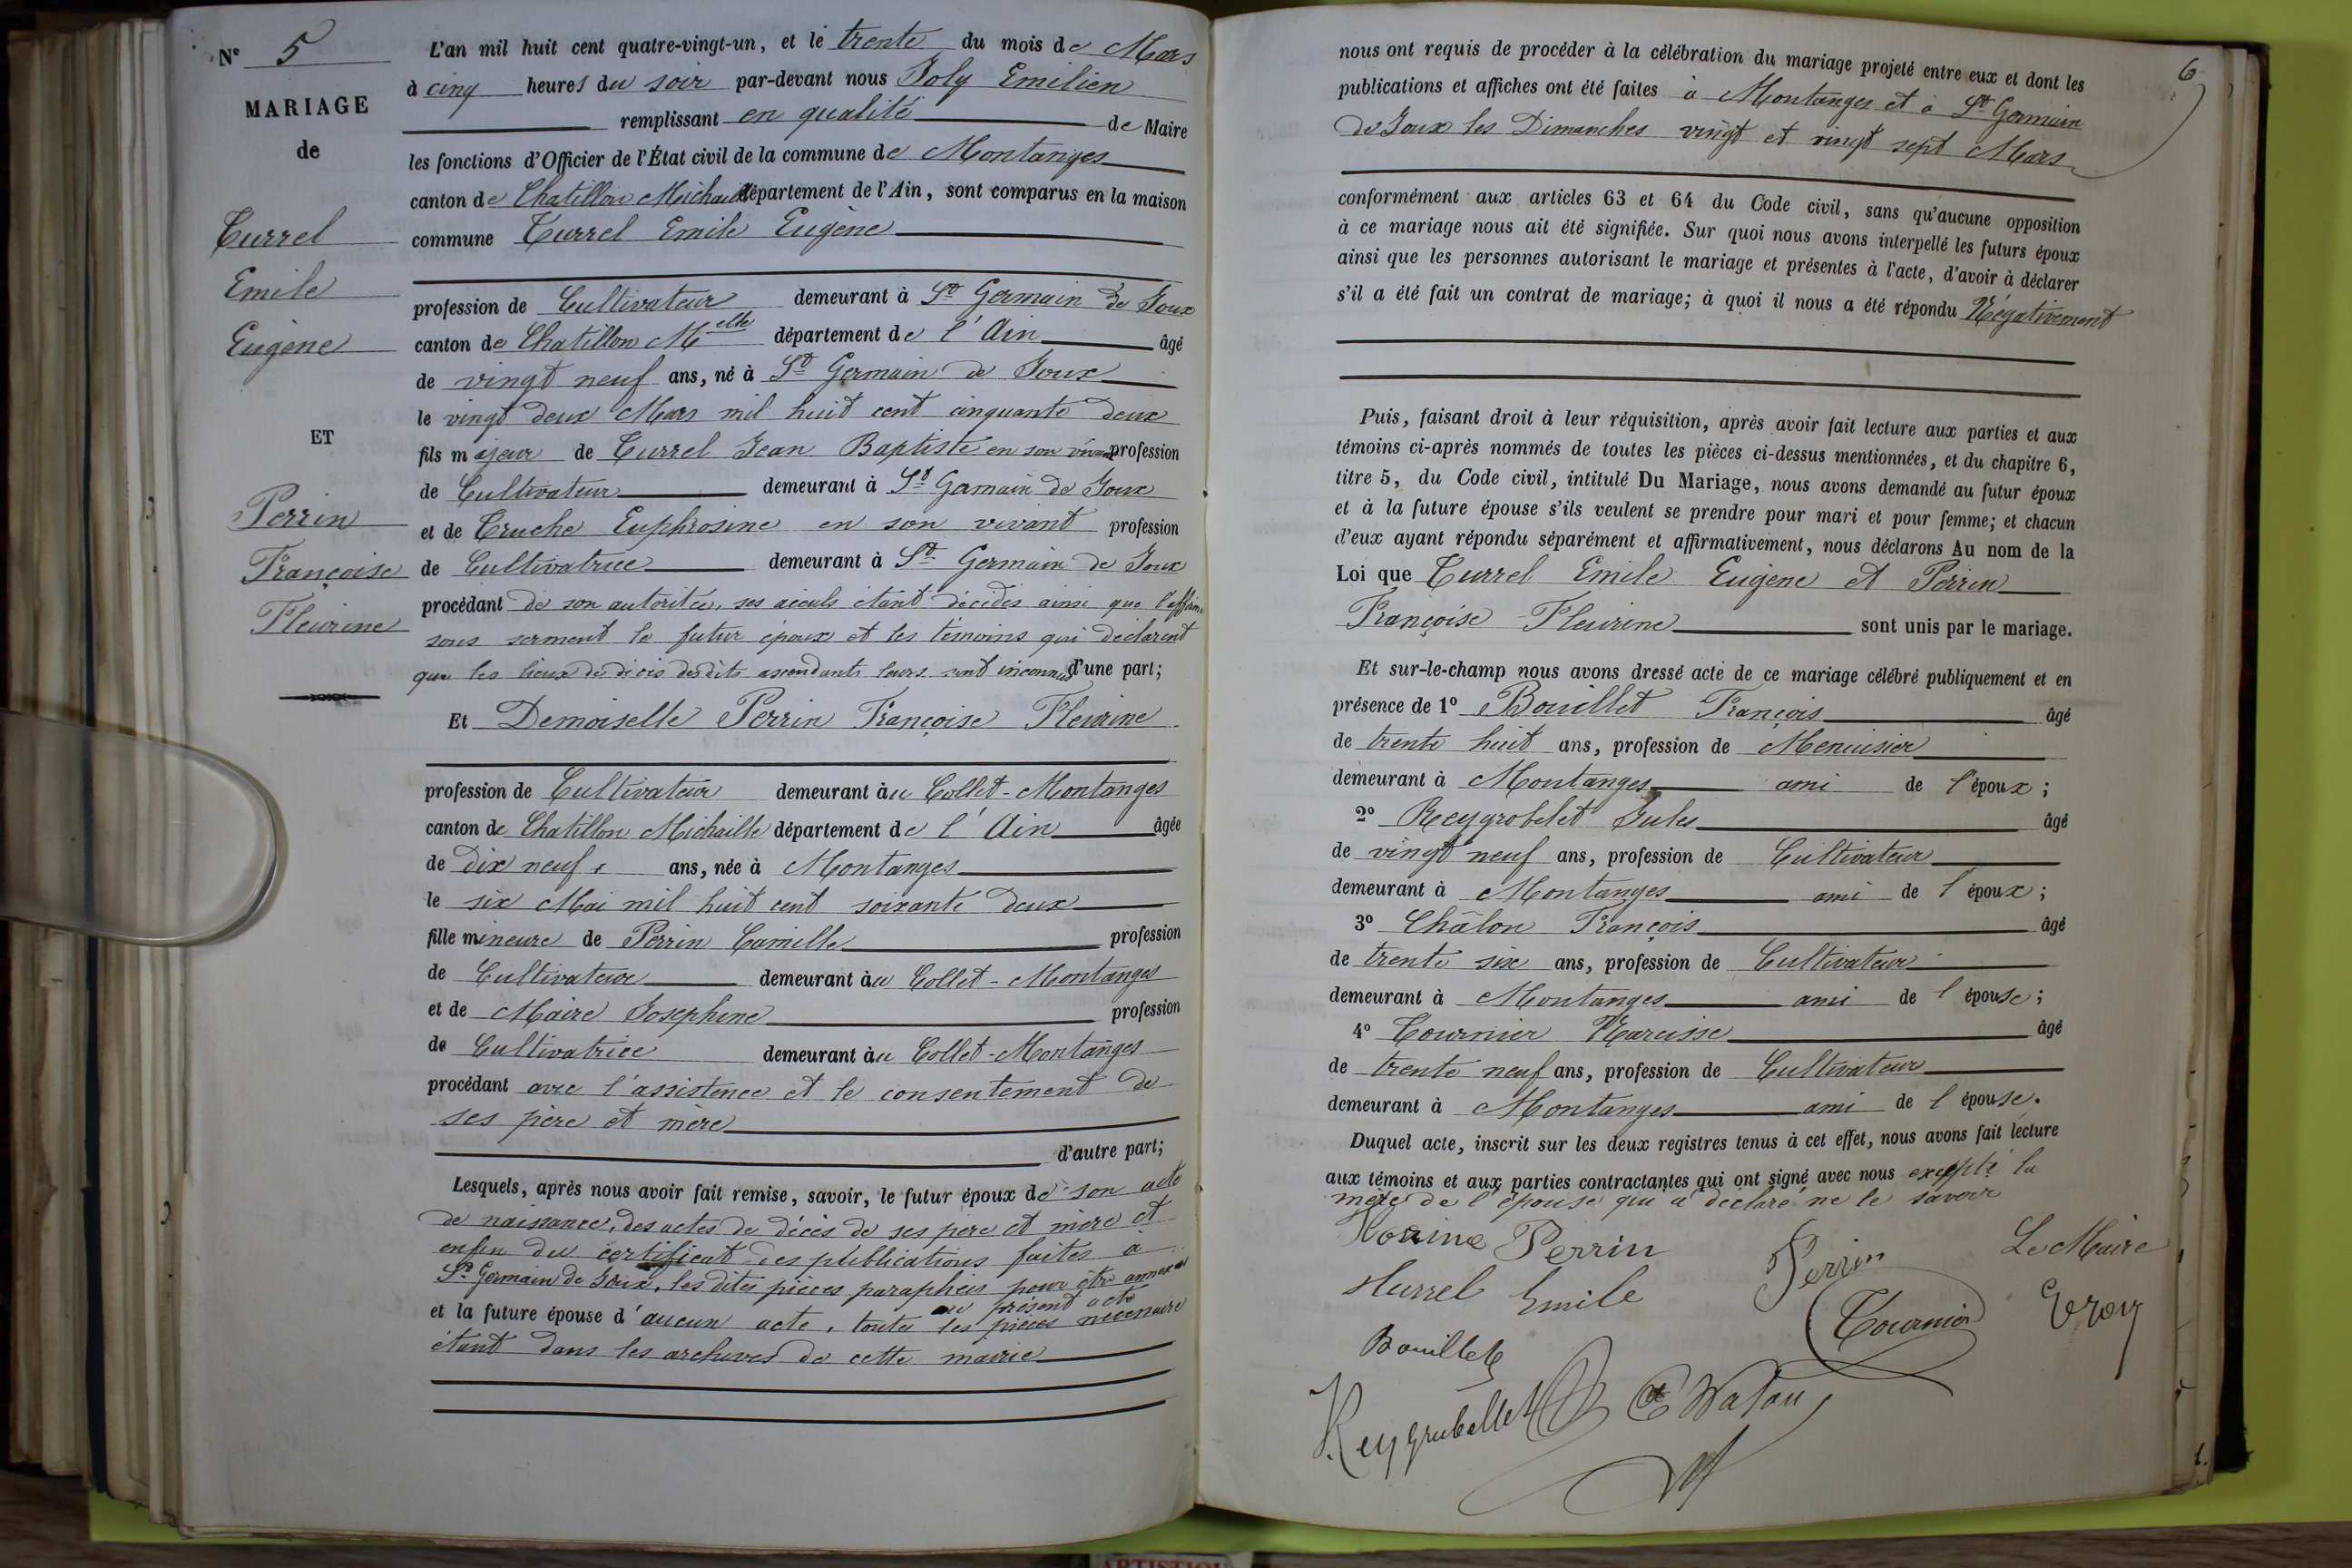 N° 5
MARIAGE
de
Turrel
Emile
Eugène
ET
Perrin
Françoise
Fleurine
L'an mil huit cent quatre-vingt-un, et le trente du mois de Mars
à cinq heures du soir par-devant nous Joly Emilien
remplissant en qualité de Maire
les fonctions d'Officier de l'État civil de la commune de Montanges
canton de Chatillon Michaille département de l'Ain, sont comparus en la maison
commune Turrel Emile Eugène
profession de Cultivateur demeurant à St Germain de Joux
canton de Chatillon Melle département de l'Ain âgé
de vingt neuf ans, né à St Germain de Joux
le vingt deux Mars mil huit cent cinquante deux
fils majeur de Turrel Jean Baptiste en son vivant profession
de Cultivateur demeurant à St Germain de Joux
et de Truche Euphrosine en son vivant profession
de Cultivatrice demeurant à St Germain de Joux
procédant de son autoritée, ses aieuls étant décédés ainsi que l'affirme
sous serment le futur époux et les témoins qui déclarent
que les lieux de décès desdits ascendants leurs sont inconnus d'une part;
Et Demoiselle Perrin Françoise Fleurine
profession de Cultivateur demeurant au Collet-Montanges
canton de Chatillon Michaille département de l'Ain âgée
de dix neuf ans, née à Montanges
le six Mai mil huit cent soixante deux
fille mineure de Perrin Camille profession
de Cultivateur demeurant au Collet-Montanges
et de Maire Josephine profession
de Cultivatrice demeurant au Collet-Montanges
procédant avec l'assistence et le consentement de
ses père et mère
d'autre part;
Lesquels, après nous avoir fait remise, savoir, le futur époux de son acte
de naissance, des actes de décès de ses père et mère et
enfin du certificat des publications faites à
St Germain de Joux, les dites pièces paraphées pour être annexées
au présent acte
et la future épouse d'aucun acte, toutes les pièces nécessaire
étant dans les archives de cette mairie
6
nous ont requis de procéder à la célébration du mariage projeté entre eux et dont les
publications et affiches ont été faites à Montanges et à St Germain
de Joux les Dimanches vingt et vingt sept Mars
conformément aux articles 63 et 64 du Code civil, sans qu'aucune opposition
à ce mariage nous ait été signifiée. Sur quoi nous avons interpellé les futurs époux
ainsi que les personnes autorisant le mariage et présentes à l'acte, d'avoir à déclarer
s'il a été fait un contrat de mariage; à quoi il nous a été répondu Négativement
Puis, faisant droit à leur réquisition, après avoir fait lecture aux parties et aux
témoins ci-après nommés de toutes les pièces ci-dessus mentionnées, et du chapitre 6,
titre 5, du Code civil, intitulé Du Mariage, nous avons demandé au futur époux
et à la future épouse s'ils veulent se prendre pour mari et pour femme; et chacun
d'eux ayant répondu séparément et affirmativement, nous déclarons Au nom de la
Loi que Turrel Emile Eugène et Perrin
Françoise Fleurine sont unis par le mariage.
Et sur-le-champ nous avons dressé acte de ce mariage célébré publiquement et en
présence de 1° Bouillet François âgé
de trente huit ans, profession de Menuisier
demeurant à Montanges ami de l'époux;
2° Reygrobelet Jules âgé
de vingt neuf ans, profession de Cultivateur
demeurant à Montanges ami de l'époux;
3° Châlon François âgé
de trente six ans, profession de Cultivateur
demeurant à Montanges ami de l'épouse;
4° Tournier Narcisse âgé
de trente neuf ans, profession de Cultivateur
demeurant à Montanges ami de l'épouse.
Duquel acte, inscrit sur les deux registres tenus à cet effet, nous avons fait lecture
aux témoins et aux parties contractantes qui ont signé avec nous excepté la
mère de l'épouse qui a déclaré ne le savoir
Perrin
Perrin
Le Maire
Emile
Tournier
Bouillet
Reygrubellet